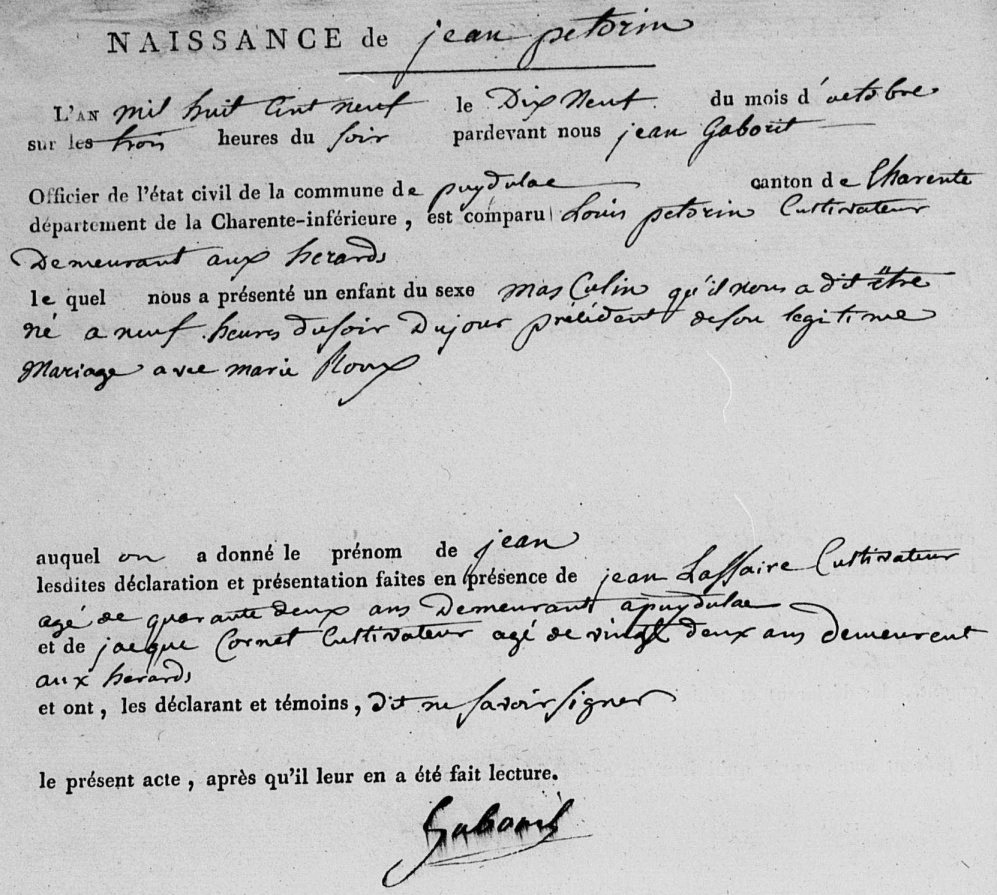 NAISSANCE de jean petorin
L'AN mil huit Cent neuf le Dix Neuf du mois d'octobre
sur les trois heures du soir pardevant nous jean Gaborit
Officier de l'état civil de la commune de puydulac canton de Charente
département de la Charente-inférieure, est comparu Louis petorin Cultivateur
Demeurant aux herards
le quel nous a présenté un enfant du sexe masCulin qu'il nous a dit être
né a neuf heures du soir Du jour précédent de son legitime
Mariage avec marie Roux
auquel on a donné le prénom de jean
lesdites déclaration et présentation faites en présence de jean Laffaire Cultivateur
agé de quarante deux ans Demeurant a puydulac
et de jacque Cornet Cultivateur agé de vingt deux ans demeurent
aux herards
et ont, les déclarant et témoins, dit ne savoir signer
le présent acte, après qu'il leur en a été fait lecture.
Gaborit